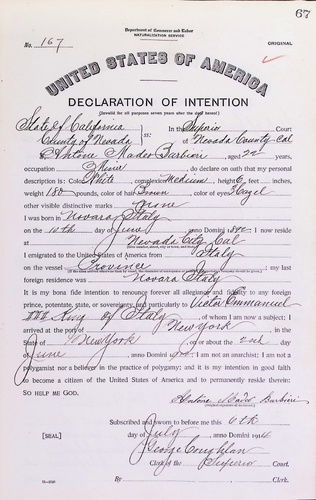 67
Department of Commerce and Labor
NATURALIZATION SERVICE
No. 167
ORIGINAL
UNITED STATES OF AMERICA
DECLARATION OF INTENTION
(Invalid for all purposes seven years after the date hereof)
State of California
County of Nevada
ss:
In the Superior Court
of Nevada County Cal
I, Antone Mador Barbieri, aged 22 years,
occupation Miner, do declare on oath that my personal
description is: Color White, complexion Medium, height 6 feet inches,
weight 180 pounds, color of hair Brown, color of eyes Hazel
other visible distinctive marks None
I was born in Novara Italy
on the 10th day of June, anno Domini; I now reside
at Nevada City Cal
I emigrated to the United States of America from Italy
on the vessel Province; my last
foreign residence was Novara Italy
It is my bona fide intention to renounce forever all allegiance and fidelity to any foreign
prince, potentate, state, or sovereignty, and particularly to Victor Emmanuel
III King of Italy, of whom I am now a subject; I
arrived at the port of New York, in the
State of New York on or about the 2nd day
of June, anno Domini; I am not an anarchist; I am not a
polygamist nor a believer in the practice of polygamy; and it is my intention in good faith
to become a citizen of the United States of America and to permanently reside therein:
SO HELP ME GOD.
Antone Mador Barbieri
Subscribed and sworn to before me this 6th
[SEAL]
day of July, anno Domini 1914
George Coughlan
Clerk of the Superior Court.
By, Clerk.